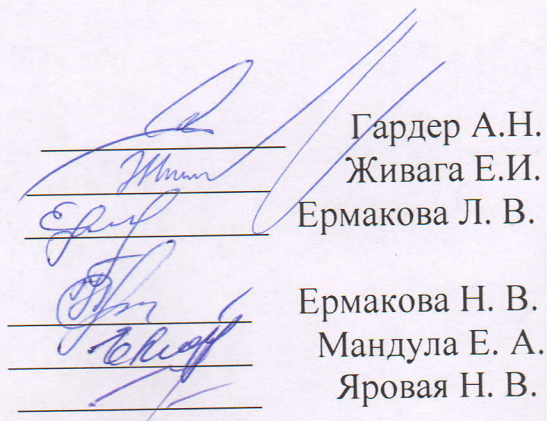 Гардер А.Н.
Живага Е.И.
Ермакова Л. В.
Ермакова Н. В.
Мандула Е. А.
Яровая Н. В.